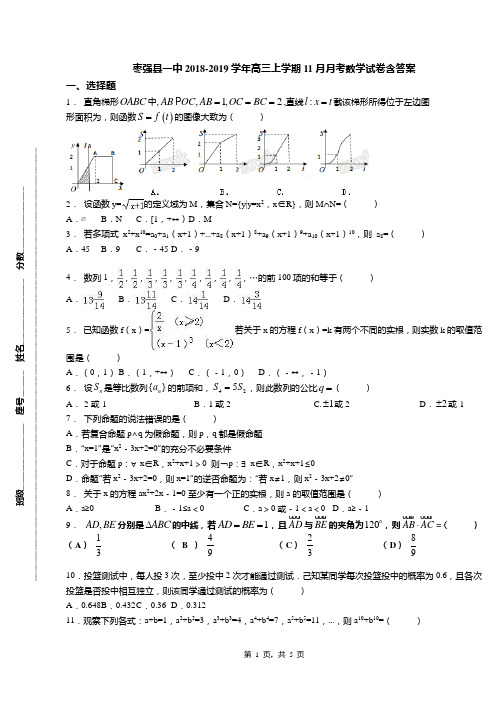 枣强县一中2018-2019学年高三上学期11月月考数学试卷含答案
一、选择题
1． 直角梯形OABC中,AB∥OC,AB=1,OC=BC=2,直线l:x=t截该梯形所得位于左边图
形面积为，则函数S=f(t)的图像大致为（ ）
A. B. C. D.
2． 设函数y=√(x+1)的定义域为M，集合N={y|y=x²，x∈R}，则M∩N=（ ）
A．∅ B．N C．[1，+∞） D．M
3． 若多项式 x²+x¹⁰=a₀+a₁（x+1）+…+a₈（x+1）⁸+a₉（x+1）⁹+a₁₀（x+1）¹⁰，则 a₈=（ ）
A．45 B．9 C．﹣45 D．﹣9
4． 数列1，1/2，1/2，1/3，1/3，1/3，1/4，1/4，1/4，1/4，…的前100项的和等于（ ）
A．13 9/14 B．13 11/14 C．14 1/14 D．14 3/14
5． 已知函数f（x）={2/x （x≥2） （x-1）³ （x<2） 若关于x的方程f（x）=k有两个不同的实根，则实数k的取值范
围是（ ）
A．（0，1） B．（1，+∞） C．（﹣1，0） D．（﹣∞，﹣1）
6． 设Sₙ是等比数列{aₙ}的前项和，S₄=5S₂，则此数列的公比q=（ ）
A．-2或-1 B．1或2 C.±1或2 D．±2或-1
7． 下列命题的说法错误的是（ ）
A．若复合命题p∧q为假命题，则p，q都是假命题
B．“x=1”是“x²﹣3x+2=0”的充分不必要条件
C．对于命题p：∀ x∈R，x²+x+1＞0 则¬p：∃ x∈R，x²+x+1≤0
D．命题“若x²﹣3x+2=0，则x=1”的逆否命题为：“若x≠1，则x²﹣3x+2≠0”
8． 关于x的方程ax²+2x﹣1=0至少有一个正的实根，则a的取值范围是（ ）
A．a≥0 B．﹣1≤a＜0 C．a＞0或﹣1＜a＜0 D．a≥﹣1
9． AD,BE分别是ΔABC的中线，若AD=BE=1，且AD与BE的夹角为120°，则AB·AC=（ ）
（A）1/3 （B）4/9 （C）2/3 （D）8/9
10．投篮测试中，每人投3次，至少投中2次才能通过测试．己知某同学每次投篮投中的概率为0.6，且各次
投篮是否投中相互独立，则该同学通过测试的概率为（ ）
A．0.648 B．0.432 C．0.36 D．0.312
11．观察下列各式：a+b=1，a²+b²=3，a³+b³=4，a⁴+b⁴=7，a⁵+b⁵=11，…，则a¹⁰+b¹⁰=（ ）
班级 座号 姓名 分数
第 1 页, 共 5 页